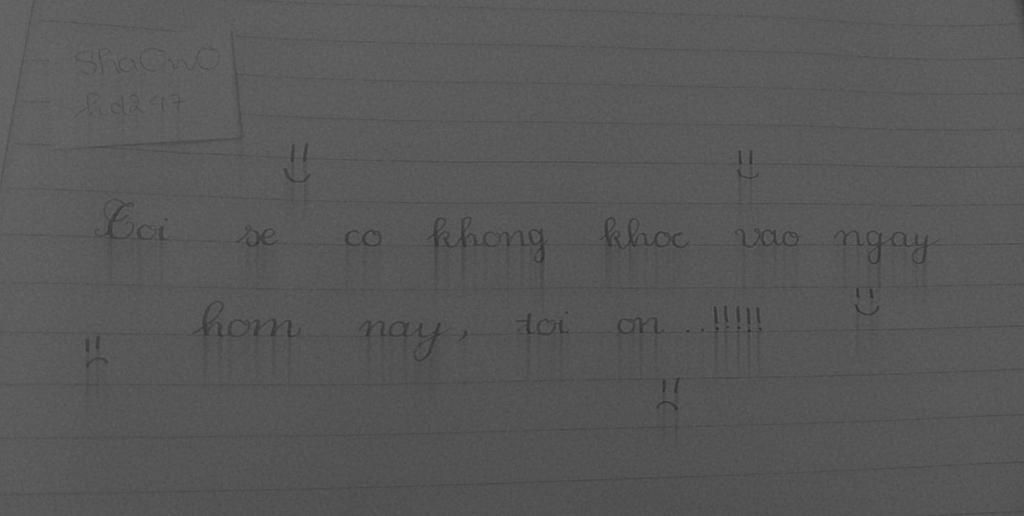 ShaOnO
hd247
Toi se co khong khoc vao ngay
hom nay, toi on ..!!!!!